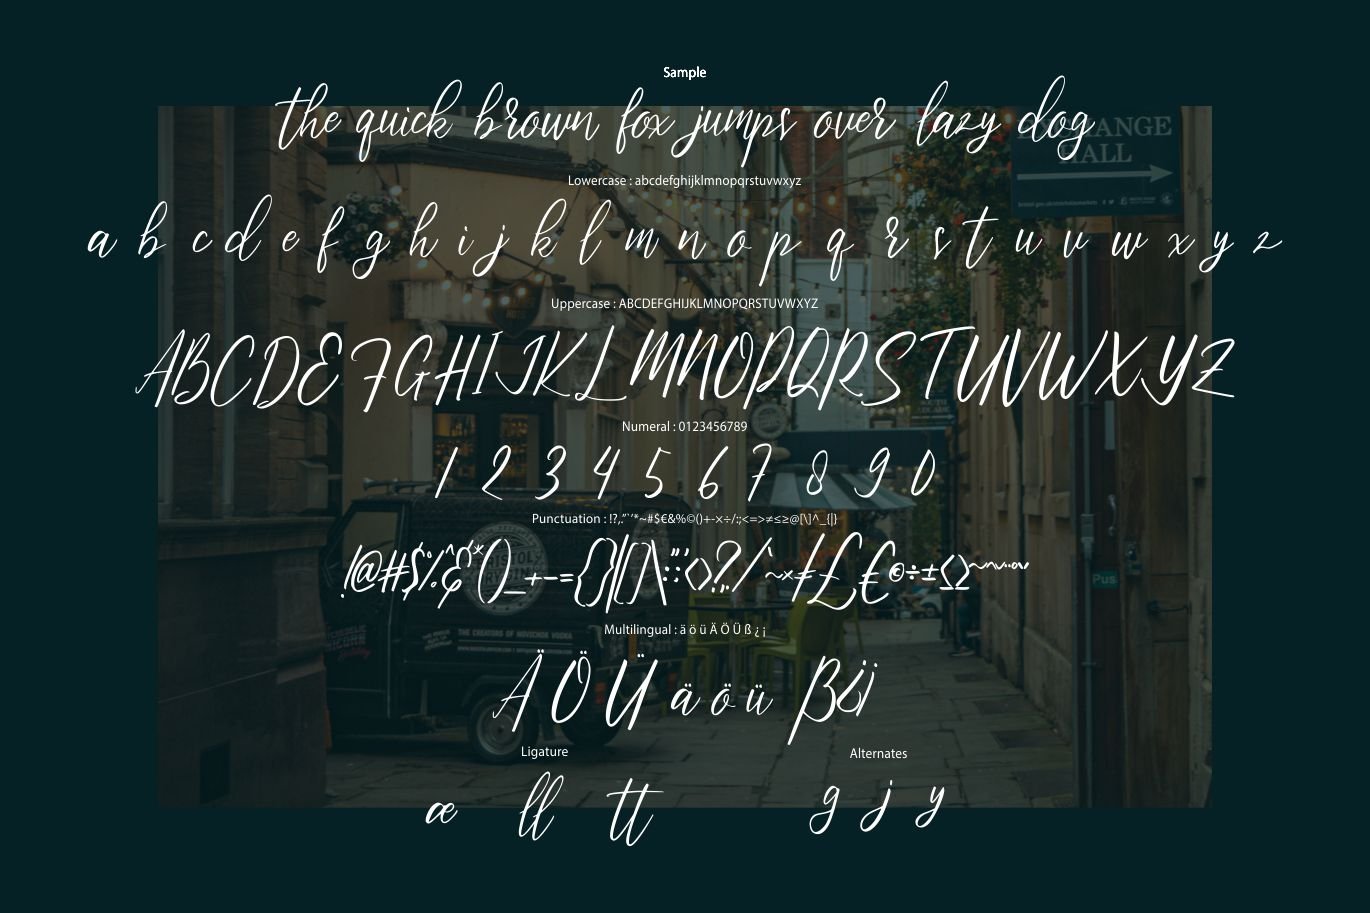 Sample
the quick brown fox jumps over lazy dog
HALL
Lowercase : abcdefghijklmnopqrstuvwxyz
a b c d e f g h i j k l m n o p q r s t u v w x y z
Uppercase : ABCDEFGHIJKLMNOPQRSTUVWXYZ
ABCDEFGHIJKLMNOPQRSTUVWXYZ
Numeral : 0123456789
1 2 3 4 5 6 7 8 9 0
Punctuation : !?,.”“‘’*~#$€&%©()+-×÷/:;<=>≠≤≥@[\]^_{|}
!@#$%^&*()_+-=
THE CREATORS OF NOVICHOK VODKA
Pus
Multilingual : ä ö ü Ä Ö Ü ß ¿ ¡
Ä Ö Ü ä ö ü ß¿¡
Ligature Alternates
æ ll tt g j y